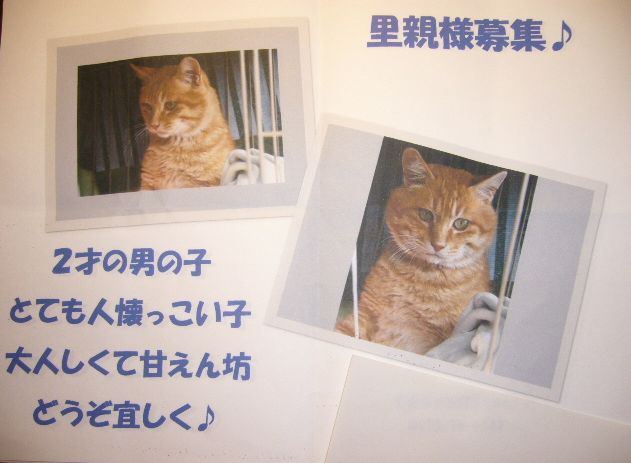 里親様募集♪
2才の男の子
とても人懐っこい子
大人しくて甘えん坊
どうぞ宜しく♪